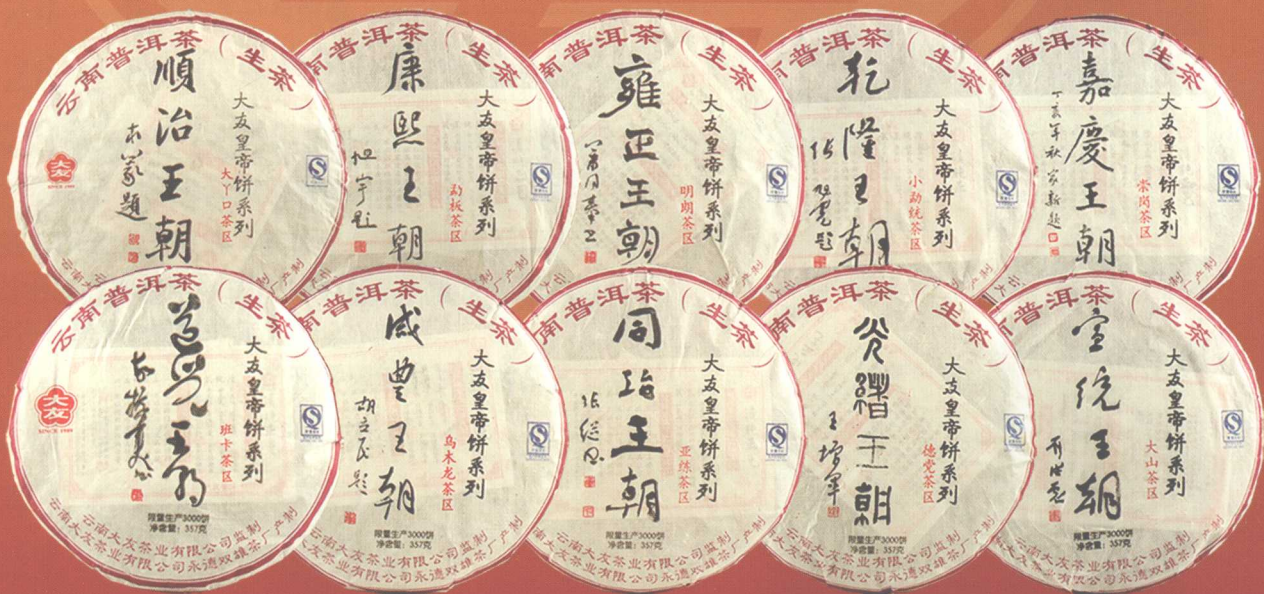 云南普洱茶（生茶）
順治王朝
大友皇帝饼系列
大丫口茶区
大友
南普洱茶（生茶）
康熙王朝
大友皇帝饼系列
勐板茶区
南普洱茶（生茶）
雍正王朝
大友皇帝饼系列
明朗茶区
南普洱茶（生茶）
乾隆王朝
大友皇帝饼系列
小勐统茶区
南普洱茶（生茶）
嘉慶王朝
丁亥年秋
大友皇帝饼系列
崇岗茶区
云南普洱茶（生茶）
道光王朝
大友皇帝饼系列
班卡茶区
大友
SINCE 1989
限量生产3000饼
净含量：357克
云南大友茶业有限公司监制
云南大友茶业有限公司永德双雄茶厂产制
南普洱茶（生茶）
咸豊王朝
胡立民题
大友皇帝饼系列
乌木龙茶区
限量生产3000饼
净含量：357克
云南大友茶业有限公司监制
大友茶业有限公司永德双雄茶厂产制
南普洱茶（生茶）
同治王朝
大友皇帝饼系列
亚练茶区
限量生产3000饼
净含量：357克
云南大友茶业有限公司监制
大友茶业有限公司永德双雄茶厂产制
南普洱茶（生茶）
光緒王朝
大友皇帝饼系列
德党茶区
限量生产3000饼
净含量：357克
云南大友茶业有限公司监制
大友茶业有限公司永德双雄茶厂产制
南普洱茶（生茶）
宣统王朝
大友皇帝饼系列
大山茶区
限量生产3000饼
净含量：357克
云南大友茶业有限公司监制
大友茶业有限公司永德双雄茶厂产制